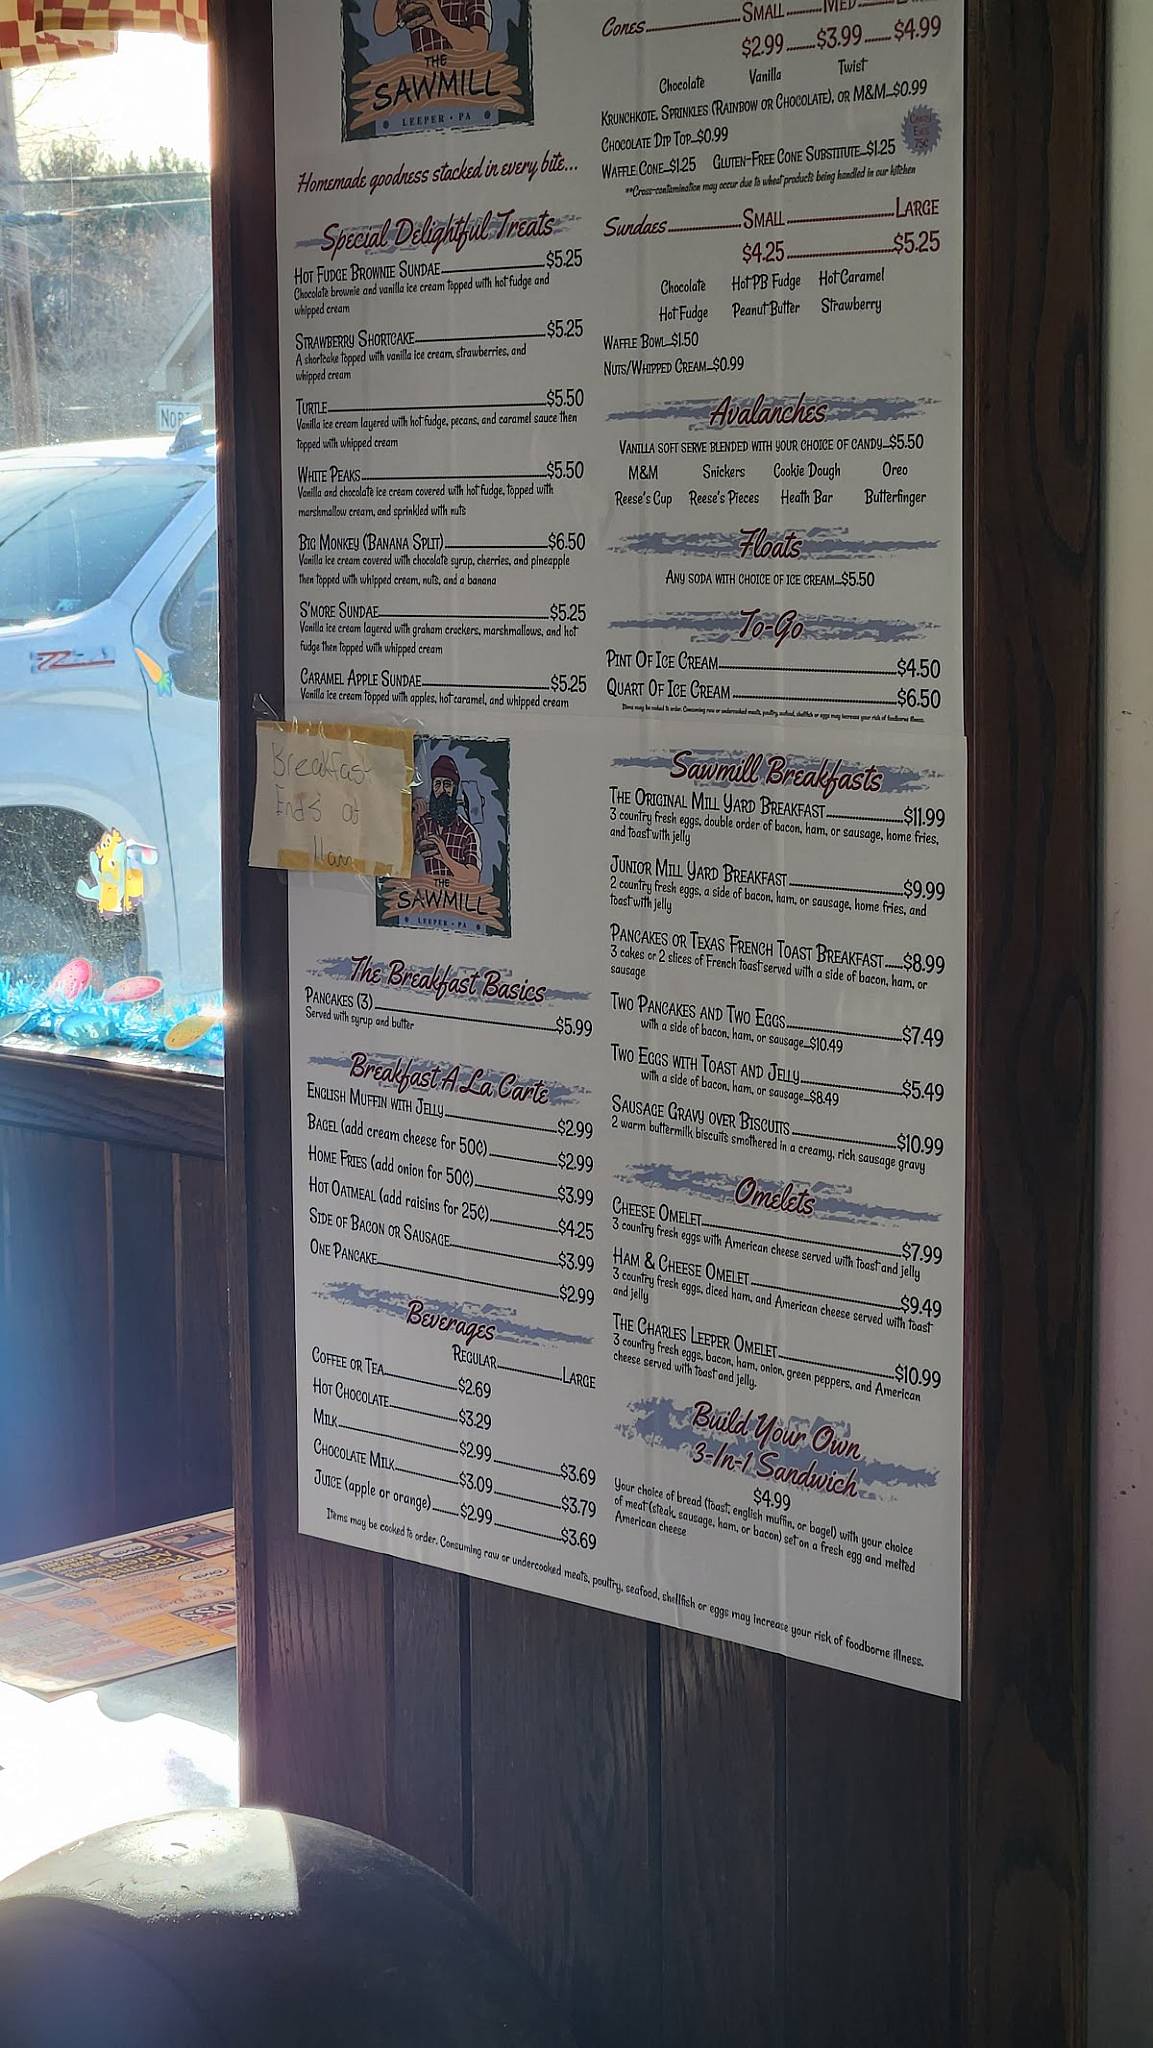 THE
SAWMILL
LEEPER • PA
Homemade goodness stacked in every bite...
Special Delightful Treats
HOT FUDGE BROWNIE SUNDAE $5.25
Chocolate brownie and vanilla ice cream topped with hot fudge and
whipped cream
STRAWBERRY SHORTCAKE $5.25
A shortcake topped with vanilla ice cream, strawberries, and
whipped cream
TURTLE $5.50
Vanilla ice cream layered with hot fudge, pecans, and caramel sauce then
topped with whipped cream
WHITE PEAKS $5.50
Vanilla and chocolate ice cream covered with hot fudge, topped with
marshmallow cream, and sprinkled with nuts
BIG MONKEY (BANANA SPLIT) $6.50
Vanilla ice cream covered with chocolate syrup, cherries, and pineapple
then topped with whipped cream, nuts, and a banana
S'MORE SUNDAE $5.25
Vanilla ice cream layered with graham crackers, marshmallows, and hot
fudge then topped with whipped cream
CARAMEL APPLE SUNDAE $5.25
Vanilla ice cream topped with apples, hot caramel, and whipped cream
Cones SMALL MED
$2.99 $3.99 $4.99
Chocolate Vanilla Twist
KRUNCHKOTE, SPRINKLES (RAINBOW OR CHOCOLATE), OR M&M $0.99
CHOCOLATE DIP TOP $0.99
CANDY
EYES
75¢
WAFFLE CONE $1.25 GLUTEN-FREE CONE SUBSTITUTE $1.25
**Cross-contamination may occur due to wheat products being handled in our kitchen
Sundaes SMALL LARGE
$4.25 $5.25
Chocolate Hot PB Fudge Hot Caramel
Hot Fudge Peanut Butter Strawberry
WAFFLE BOWL $1.50
NUTS/WHIPPED CREAM $0.99
Avalanches
VANILLA SOFT SERVE BLENDED WITH YOUR CHOICE OF CANDY $5.50
M&M Snickers Cookie Dough Oreo
Reese's Cup Reese's Pieces Heath Bar Butterfinger
Floats
ANY SODA WITH CHOICE OF ICE CREAM $5.50
To-Go
PINT OF ICE CREAM $4.50
QUART OF ICE CREAM $6.50
Items may be cooked to order. Consuming raw or undercooked meats, poultry, seafood, shellfish or eggs may increase your risk of foodborne illness.
Breakfast
Ends at
11am
THE
SAWMILL
LEEPER • PA
The Breakfast Basics
PANCAKES (3) $5.99
Served with syrup and butter
Breakfast A La Carte
ENGLISH MUFFIN WITH JELLY $2.99
BAGEL (add cream cheese for 50¢) $2.99
HOME FRIES (add onion for 50¢) $3.99
HOT OATMEAL (add raisins for 25¢) $4.25
SIDE OF BACON OR SAUSAGE $3.99
ONE PANCAKE $2.99
Beverages
REGULAR LARGE
COFFEE OR TEA $2.69
HOT CHOCOLATE $3.29
MILK $2.99 $3.69
CHOCOLATE MILK $3.09 $3.79
JUICE (apple or orange) $2.99 $3.69
Sawmill Breakfasts
THE ORIGINAL MILL YARD BREAKFAST $11.99
3 country fresh eggs, double order of bacon, ham, or sausage, home fries,
and toast with jelly
JUNIOR MILL YARD BREAKFAST $9.99
2 country fresh eggs, a side of bacon, ham, or sausage, home fries, and
toast with jelly
PANCAKES OR TEXAS FRENCH TOAST BREAKFAST $8.99
3 cakes or 2 slices of French toast served with a side of bacon, ham, or
sausage
TWO PANCAKES AND TWO EGGS $7.49
with a side of bacon, ham, or sausage $10.49
TWO EGGS WITH TOAST AND JELLY $5.49
with a side of bacon, ham, or sausage $8.49
SAUSAGE GRAVY OVER BISCUITS $10.99
2 warm buttermilk biscuits smothered in a creamy, rich sausage gravy
Omelets
CHEESE OMELET $7.99
3 country fresh eggs with American cheese served with toast and jelly
HAM & CHEESE OMELET $9.49
3 country fresh eggs, diced ham, and American cheese served with toast
and jelly
THE CHARLES LEEPER OMELET $10.99
3 country fresh eggs, bacon, ham, onion, green peppers, and American
cheese served with toast and jelly.
Build Your Own
3-In-1 Sandwich
$4.99
Your choice of bread (toast, english muffin, or bagel) with your choice
of meat (steak, sausage, ham, or bacon) set on a fresh egg and melted
American cheese
Items may be cooked to order. Consuming raw or undercooked meats, poultry, seafood, shellfish or eggs may increase your risk of foodborne illness.